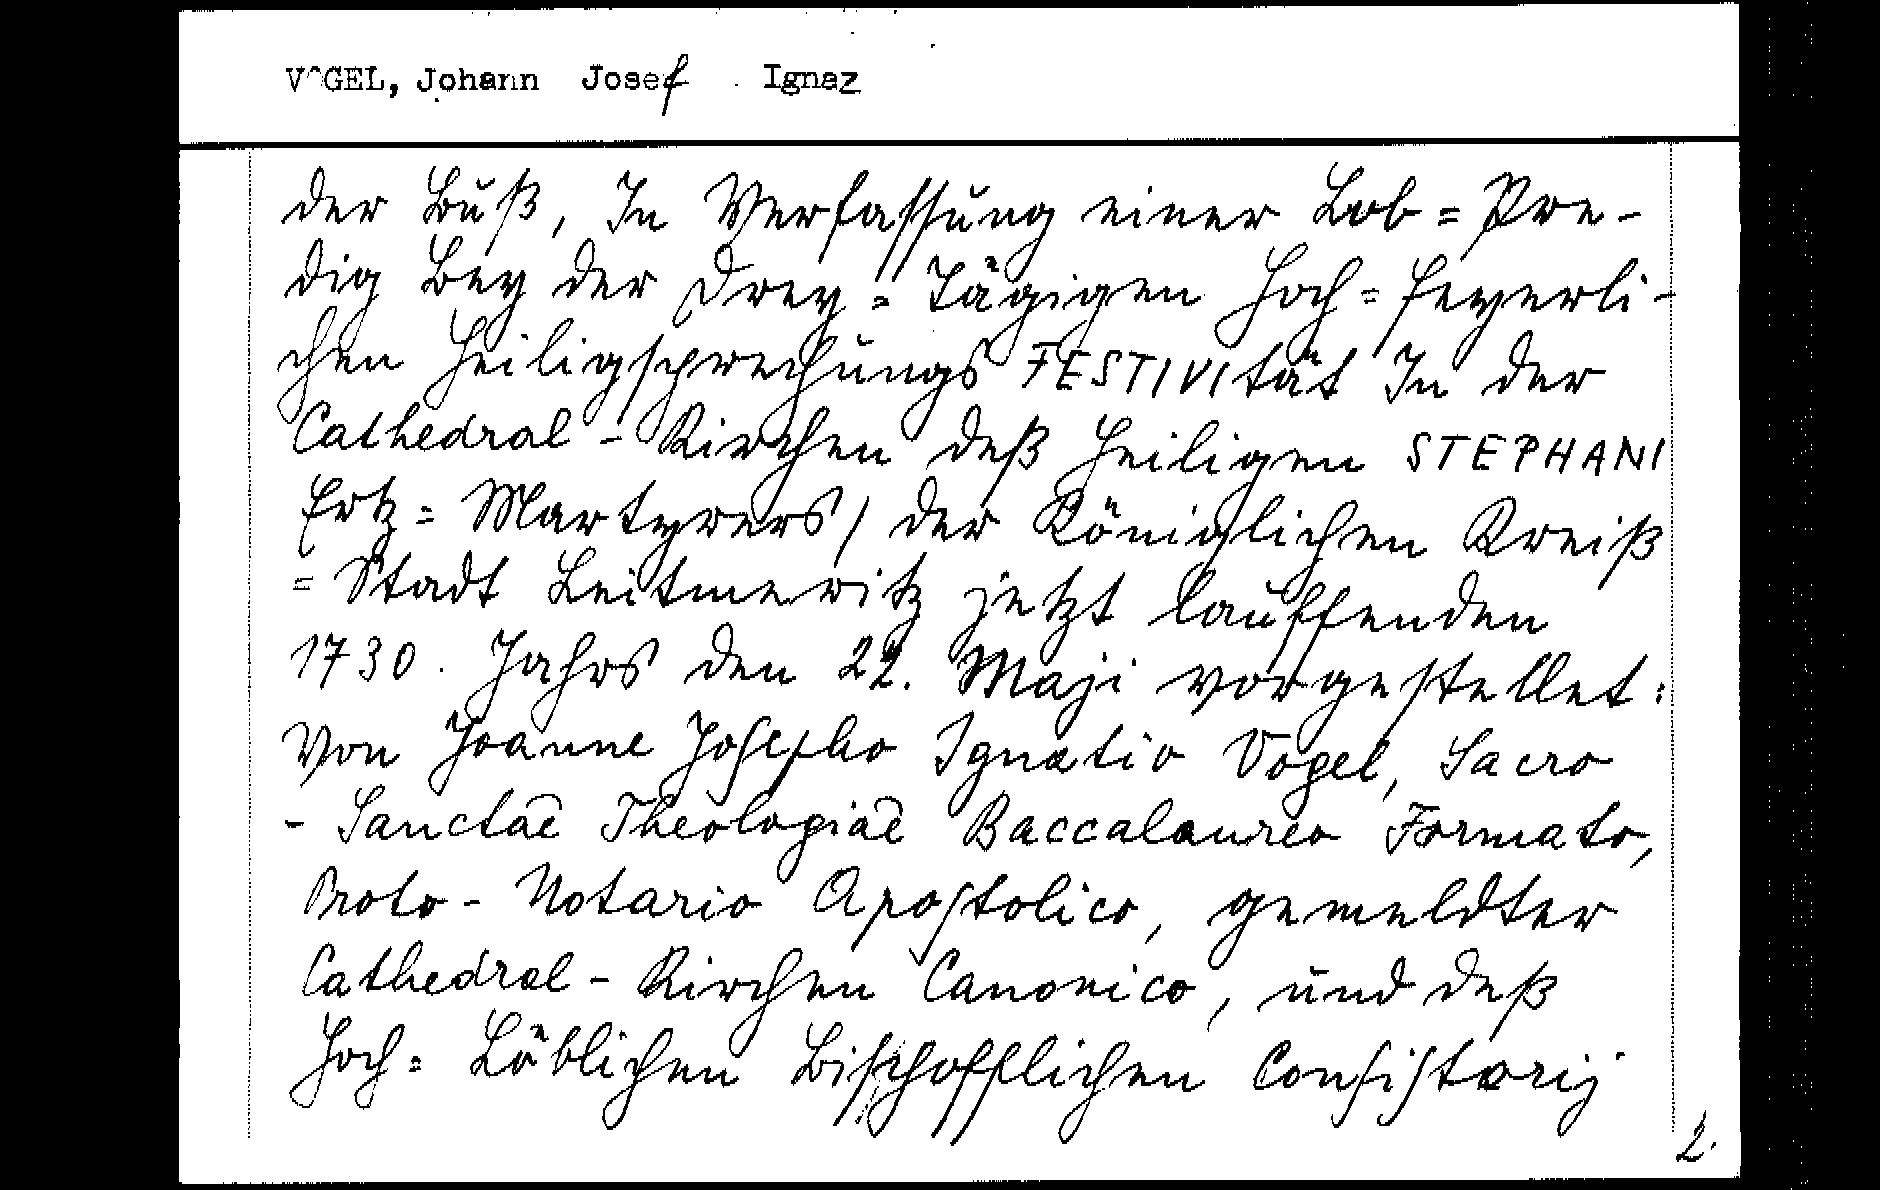 VOGEL, Johann Josef Ignaz
der Buß, In Verfassung einer Lob=Pre-
dig Bey der Drey=Tägigen Hoch=feyerli-
chen Heiligsprechungs FESTIVIтät In der
Cathedral-Kirchen deß Heiligen STEPHANI
Ertz=Martyrers/ der Königlichen Kreiß
=Stadt Leitmeritz jetzt lauffenden
1730. Jahrs den 22. Maji vorgestellet:
Von Joanne Josepho Ignatio Vogel, Sacro
-Sanctae Theologiae Baccalaureo Formato,
Proto-Notario Apostolico, gemeldter
Cathedral-Kirchen Canonico, und deß
Hoch=Löblichen Bischofflichen Consistorij
2.